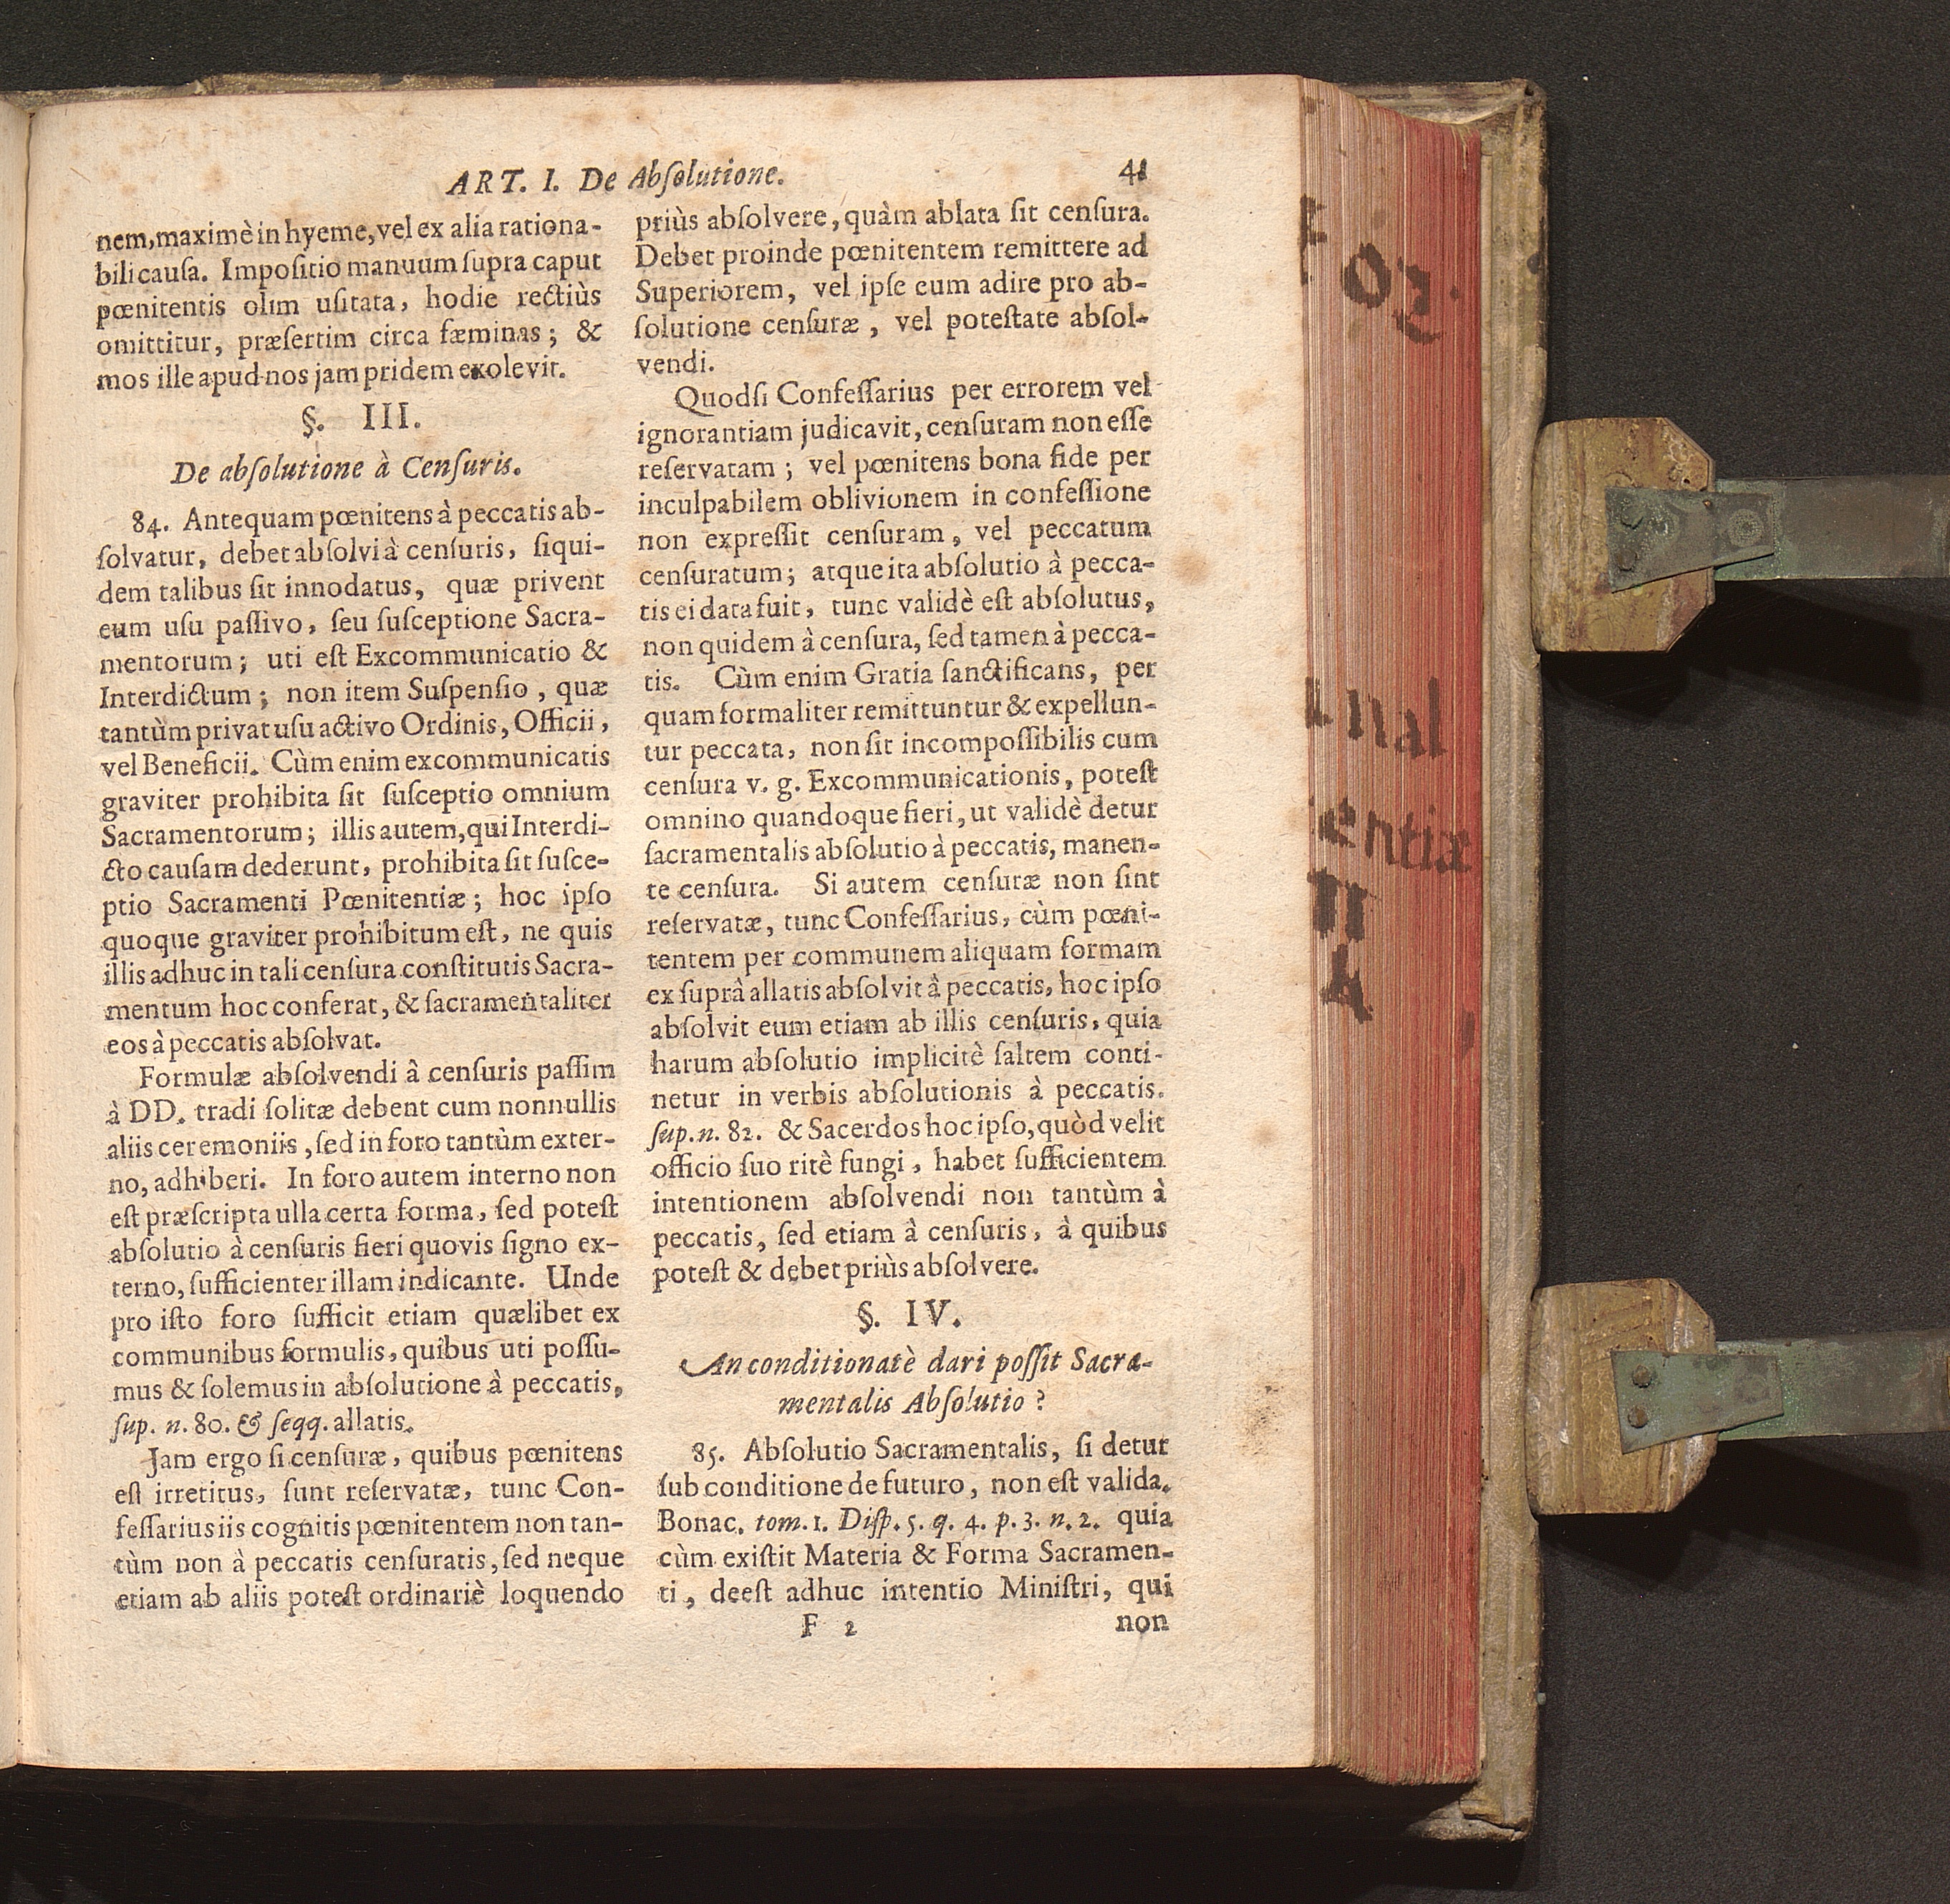 ART. I. De Abſolutione. 41
nem, maximè in hyeme, vel ex alia rationa-
bili cauſa. Impoſitio manuum ſupra caput
pœnitentis olim uſitata, hodie rectiùs
omittitur, præſertim circa fæminas; &
mos ille apud nos jam pridem exolevit.
§. III.
De abſolutione à Cenſuris.
84. Antequam pœnitens à peccatis ab-
ſolvatur, debet abſolvi à cenſuris, ſiqui-
dem talibus ſit innodatus, quæ privent
eum uſu paſſivo, ſeu ſuſceptione Sacra-
mentorum; uti eſt Excommunicatio &
Interdictum; non item Suſpenſio, quæ
tantùm privat uſu activo Ordinis, Officii,
vel Beneficii. Cùm enim excommunicatis
graviter prohibita ſit ſuſceptio omnium
Sacramentorum; illis autem, qui Interdi-
cto cauſam dederunt, prohibita ſit ſuſce-
ptio Sacramenti Pœnitentiæ; hoc ipſo
quoque graviter prohibitum eſt, ne quis
illis adhuc in tali cenſura conſtitutis Sacra-
mentum hoc conferat, & ſacramentaliter
eos à peccatis abſolvat.
Formulæ abſolvendi â cenſuris paſſim
à DD. tradi ſolitæ debent cum nonnullis
aliis ceremoniis, ſed in foro tantùm exter-
no, adhiberi. In foro autem interno non
eſt præſcripta ulla certa forma, ſed poteſt
abſolutio à cenſuris fieri quovis ſigno ex-
terno, ſufficienter illam indicante. Unde
pro iſto foro ſufficit etiam quælibet ex
communibus formulis, quibus uti poſſu-
mus & ſolemus in abſolutione à peccatis,
ſup. n. 80. & ſeqq. allatis.
Jam ergo ſi cenſuræ, quibus pœnitens
eſt irretitus, ſunt reſervatæ, tunc Con-
feſſarius iis cognitis pœnitentem non tan-
tùm non à peccatis cenſuratis, ſed neque
etiam ab aliis poteſt ordinariè loquendo
priùs abſolvere, quàm ablata ſit cenſura.
Debet proinde pœnitentem remittere ad
Superiorem, vel ipſe eum adire pro ab-
ſolutione cenſuræ, vel poteſtate abſol-
vendi.
Quodſi Confeſſarius per errorem vel
ignorantiam judicavit, cenſuram non eſſe
reſervatam; vel pœnitens bona fide per
inculpabilem oblivionem in confeſſione
non expreſſit cenſuram, vel peccatum
cenſuratum; atque ita abſolutio à pecca-
tis ei data fuit, tunc validè eſt abſolutus,
non quidem à cenſura, ſed tamen à pecca-
tis. Cùm enim Gratia ſanctificans, per
quam formaliter remittuntur & expellun-
tur peccata, non ſit incompoſſibilis cum
cenſura v. g. Excommunicationis, poteſt
omnino quandoque fieri, ut validè detur
ſacramentalis abſolutio à peccatis, manen-
te cenſura. Si autem cenſuræ non ſint
reſervatæ, tunc Confeſſarius, cùm pœni-
tentem per communem aliquam formam
ex ſuprâ allatis abſolvit â peccatis, hoc ipſo
abſolvit eum etiam ab illis cenſuris, quia
harum abſolutio implicitè ſaltem conti-
netur in verbis abſolutionis à peccatis.
ſup. n. 82. & Sacerdos hoc ipſo, quòd velit
officio ſuo ritè fungi, habet ſufficientem
intentionem abſolvendi non tantùm à
peccatis, ſed etiam â cenſuris, à quibus
poteſt & debet priùs abſolvere.
§. IV.
An conditionatè dari poſſit Sacra-
mentalis Abſolutio?
85. Abſolutio Sacramentalis, ſi detur
ſub conditione de futuro, non eſt valida.
Bonac. tom. 1. Diſp. 5. q. 4. p. 3. n. 2. quia
cùm exiſtit Materia & Forma Sacramen-
ti, deeſt adhuc intentio Miniſtri, qui
F 2 non
nal
entiæ
II
A